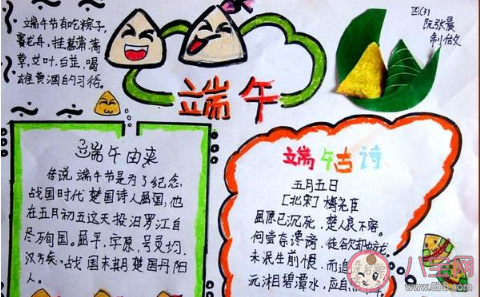 端午节有吃粽子,
赛龙舟,挂菖蒲
草,艾叶,白芷,喝
雄黄酒的习俗。
端午
四(3)
阮张晨
制做
端午由来
传说端午节是为了纪念
战国时代楚国诗人屈原,他
在五月初五这天投汨罗江自
尽殉国。屈平,字原,号灵均,
汉方矣、战国末期楚国丹阳
人。
端午古诗
五月五日
[北宋] 梅尧臣
屈原已沉死,楚人哀不容。
何尝奈谗谤,徒欲却蛟龙
未泯生前恨,而追
沅湘碧潭水,应自